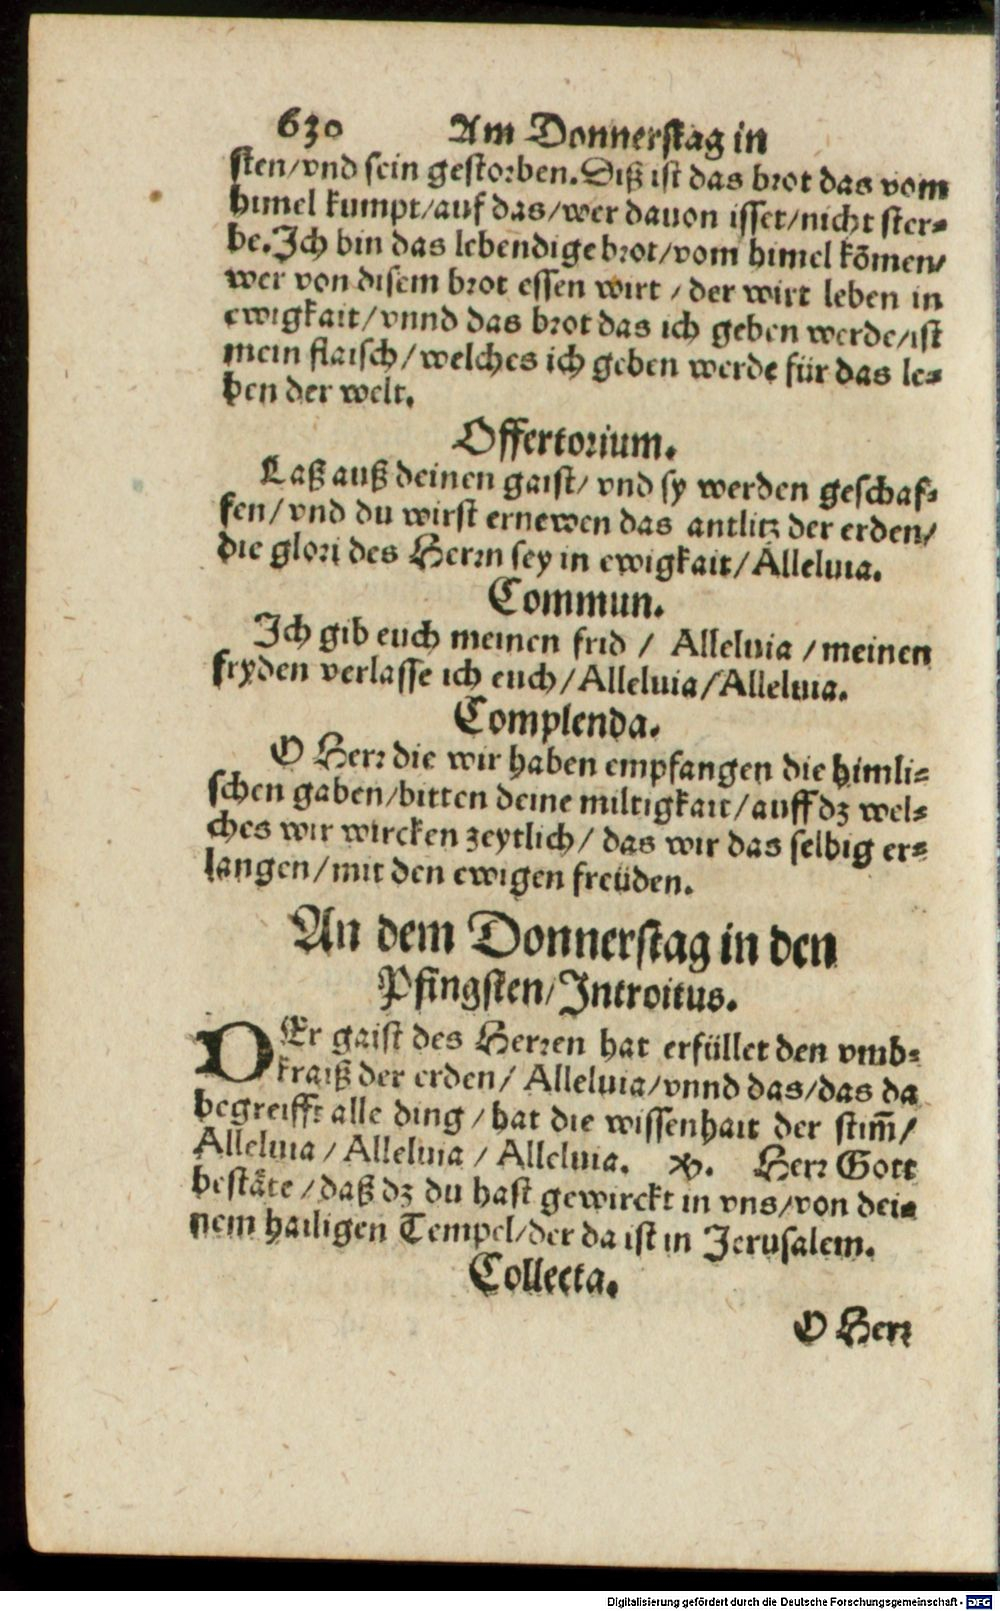 630 Am Donnerstag in
sten/vnd sein gestorben. Diß ist das brot das vom
himel kumpt/auf das/wer dauon isset/nicht ster⸗
be. Ich bin das lebendige brot/vom himel kõmen/
wer von disem brot essen wirt / der wirt leben in
ewigkait/vnnd das brot das ich geben werde/ist
mein flaisch/welches ich geben werde für das le⸗
ben der welt.
Offertorium.
Laß auß deinen gaist/ vnd sy werden geschaf⸗
fen/vnd du wirst ernewen das antlitz der erden/
die glori des Herrn sey in ewigkait/Alleluia.
Commun.
Ich gib euch meinen frid / Alleluia /meinen
fryden verlasse ich euch/Alleluia/Alleluia.
Complenda.
O Herr die wir haben empfangen die himli⸗
schen gaben/bitten deine miltigkait/auff dz wel⸗
ches wir wircken zeytlich/ das wir das selbig er⸗
langen/mit den ewigen freüden.
An dem Donnerstag in den
Pfingsten/Introitus.
DEr gaist des Herren hat erfüllet den vmb⸗
kraiß der erden/ Alleluia/vnnd das/das da
begreifft alle ding /hat die wissenhait der stim̃/
Alleluia / Alleluia / Alleluia. ℣. Herr Gott
bestäte /daß dz du hast gewirckt in vns/von dei⸗
nem hailigen Tempel/der da ist in Jerusalem.
Collecta.
O Herr
Digitalisierung gefördert durch die Deutsche Forschungsgemeinschaft - DFG